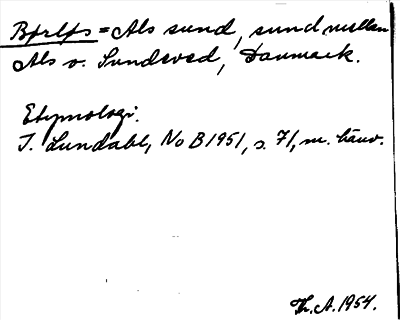 = Als sund, sund mellan
Als o. Sundeved, Danmark.
Etymologi.
I. Lundahl, NoB 1951, s. 71, m. hänv.
Th. A. 1954.